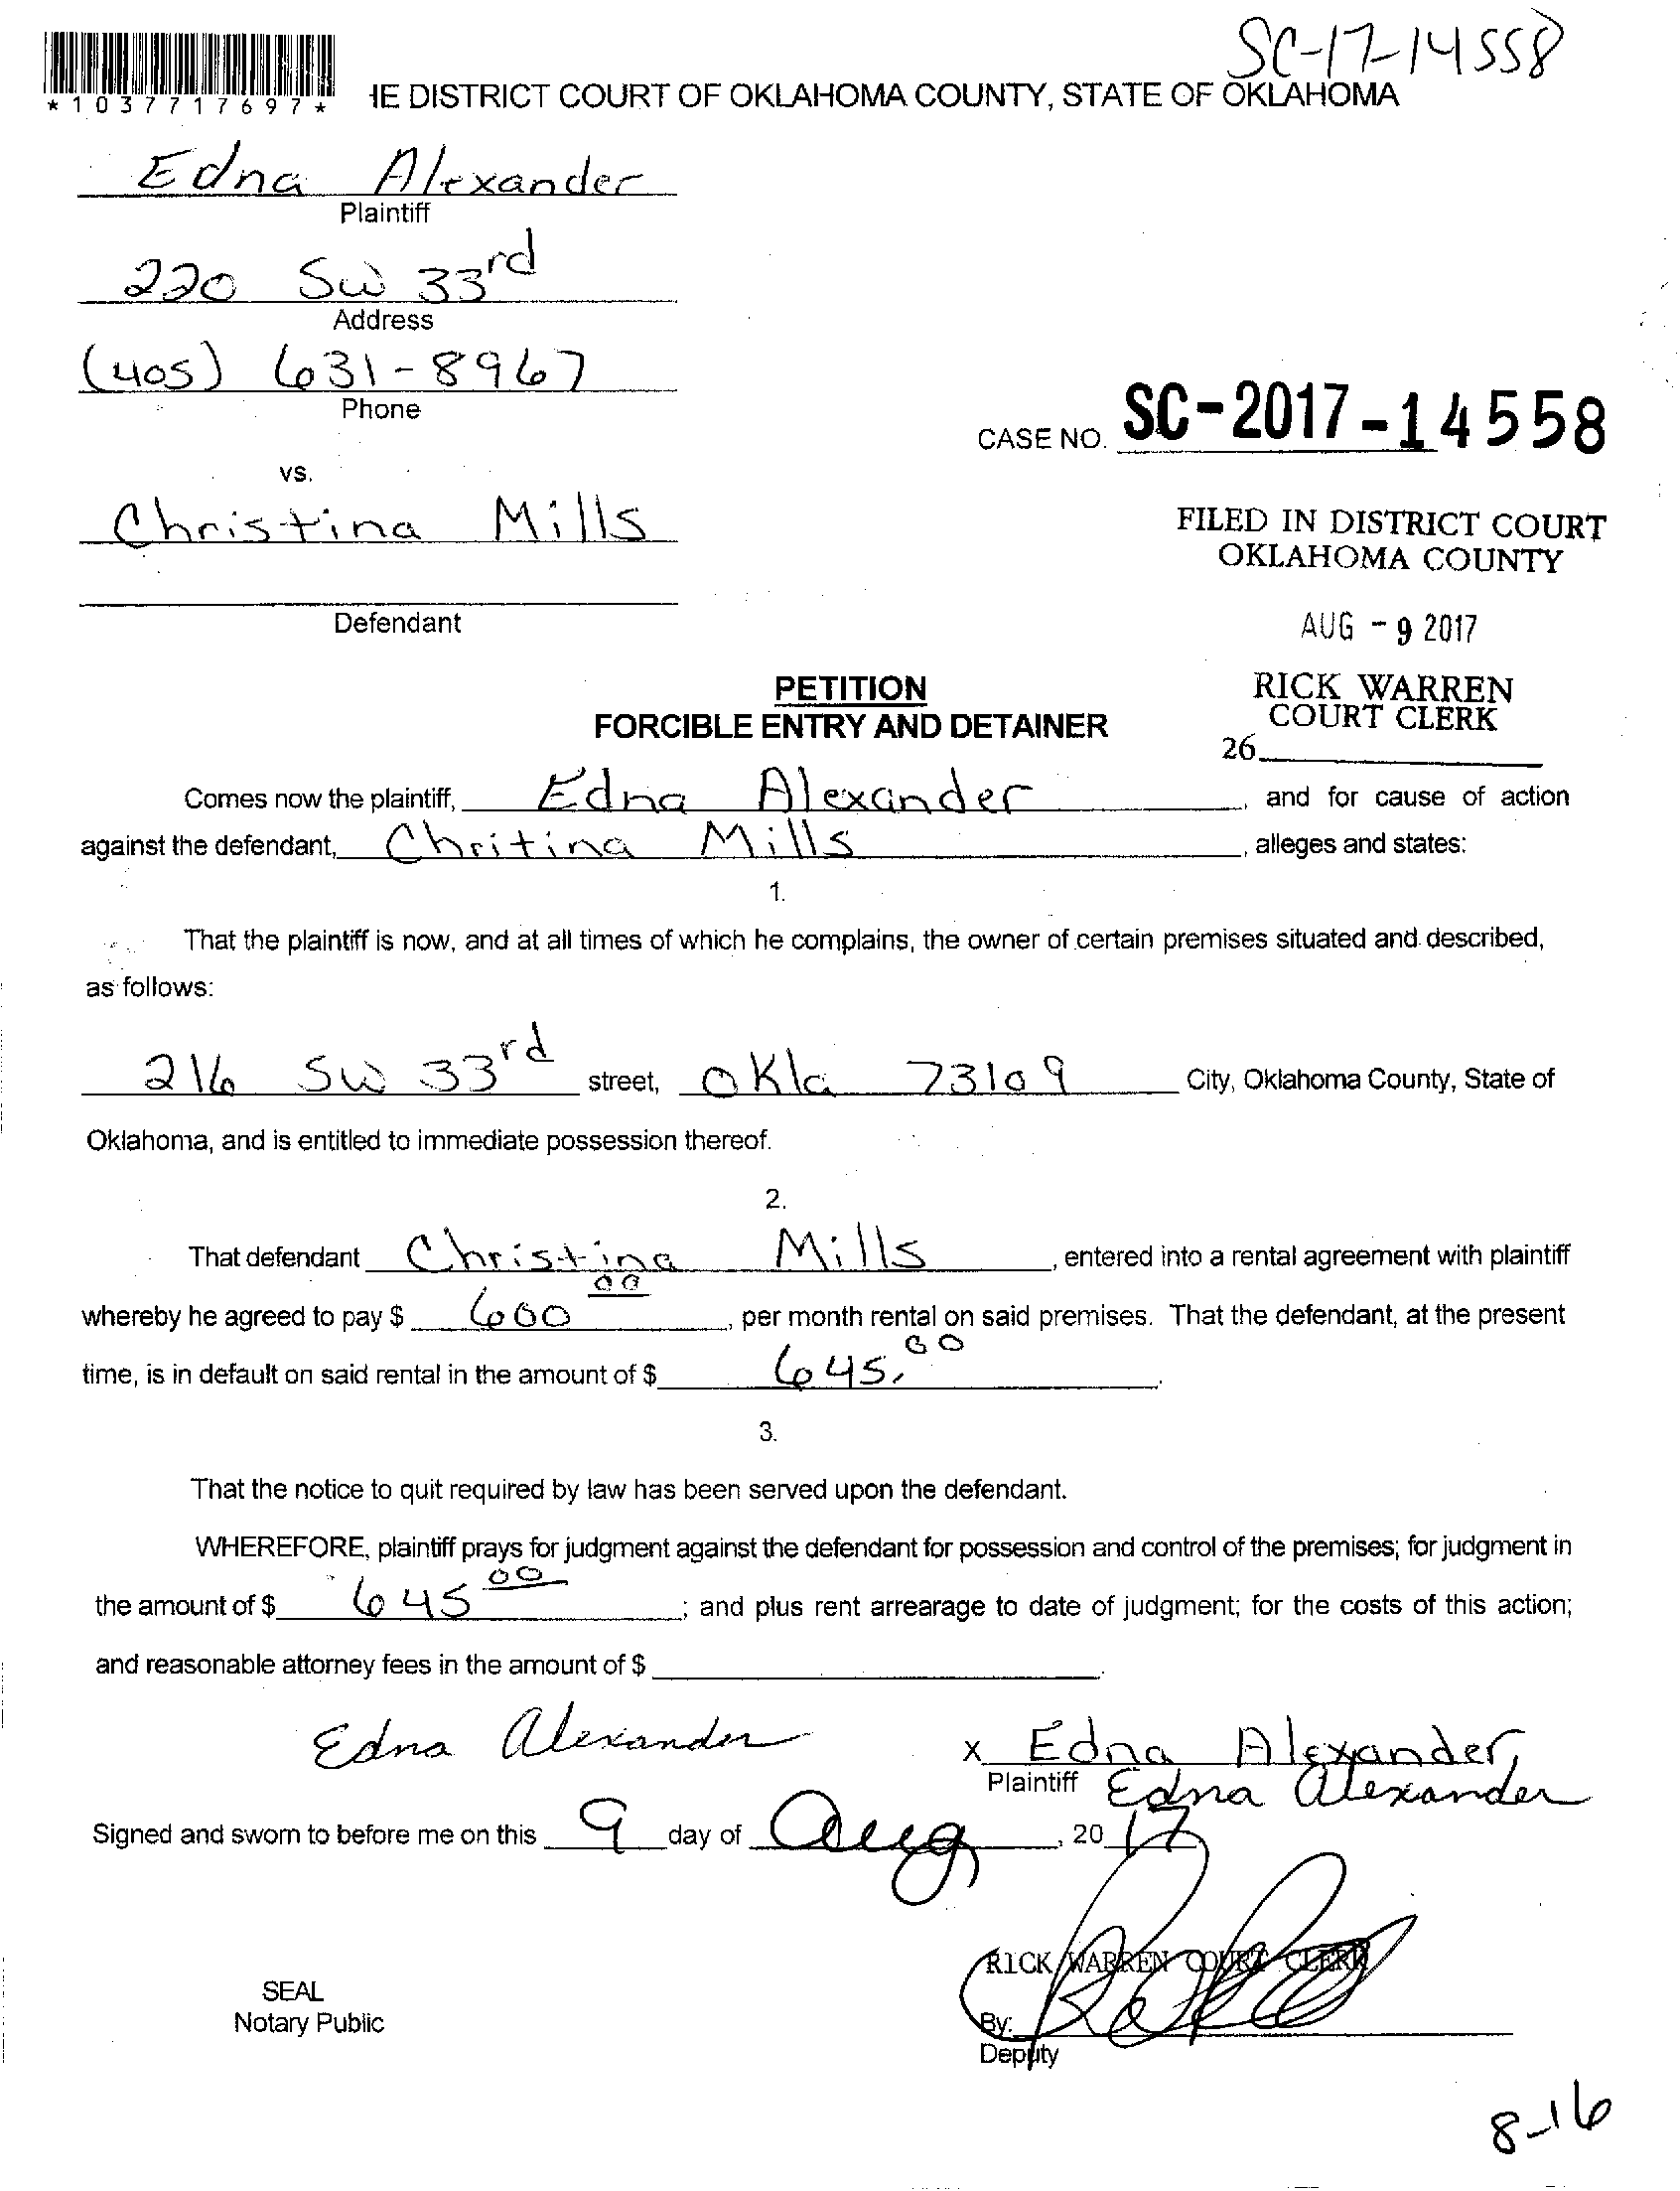 SC-17-14558
*1037717697* IE DISTRICT COURT OF OKLAHOMA COUNTY, STATE OF OKLAHOMA
Edna Alexander
Plaintiff
220 SW 33rd
Address
(405) 631-8967
Phone
CASE NO. SC-2017-14558
vs.
Christina Mills
Defendant
FILED IN DISTRICT COURT
OKLAHOMA COUNTY
AUG -9 2017
RICK WARREN
COURT CLERK
26
PETITION
FORCIBLE ENTRY AND DETAINER
Comes now the plaintiff, Edna Alexander, and for cause of action
against the defendant, Chritina Mills, alleges and states:
1.
That the plaintiff is now, and at all times of which he complains, the owner of certain premises situated and described,
as follows:
216 SW 33rd street, Okla 73109 City, Oklahoma County, State of
Oklahoma, and is entitled to immediate possession thereof.
2.
That defendant Christina Mills, entered into a rental agreement with plaintiff
whereby he agreed to pay $ 600 00, per month rental on said premises. That the defendant, at the present
time, is in default on said rental in the amount of $ 645.00.
3.
That the notice to quit required by law has been served upon the defendant.
WHEREFORE, plaintiff prays for judgment against the defendant for possession and control of the premises; for judgment in
the amount of $ 645 00; and plus rent arrearage to date of judgment; for the costs of this action;
and reasonable attorney fees in the amount of $.
Edna Alexander
x Edna Alexander
Plaintiff Edna Alexander
Signed and sworn to before me on this 9 day of Aug, 2017
RICK WARREN COURT CLERK
SEAL
Notary Public
By:
Deputy
8-16